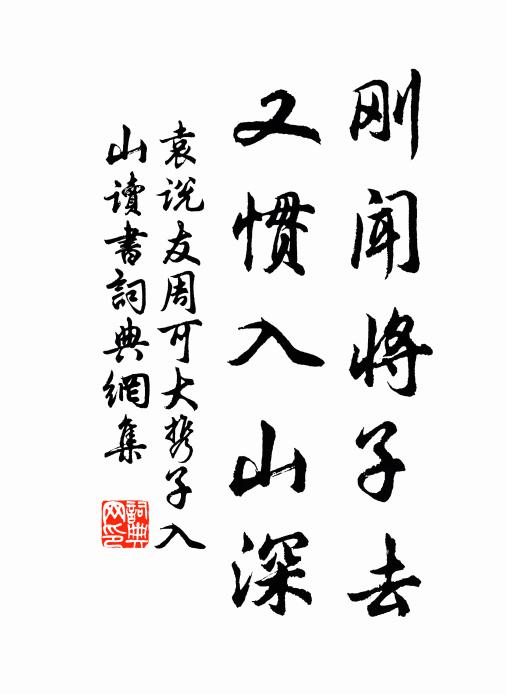 刚闻将子去
又惯入山深
袁说友周可大携子入
山读书詞典網集
詞典
网印